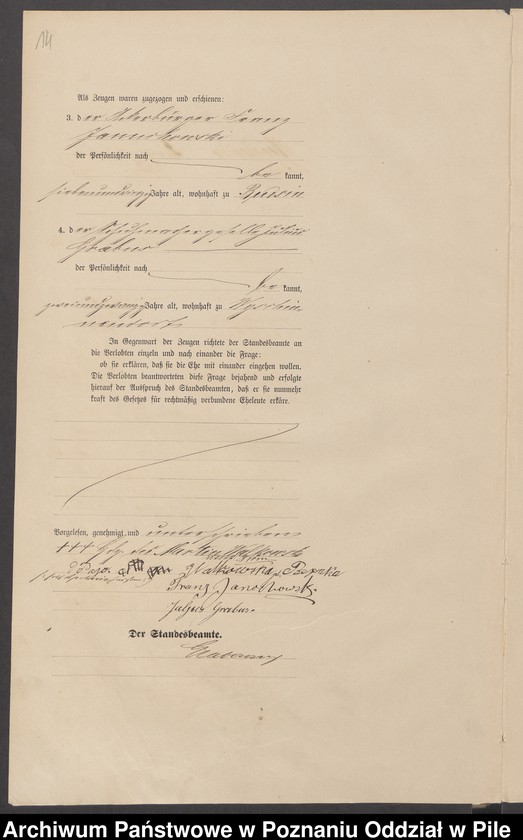 14
Als Zeugen waren zugezogen und erschienen:
3. der Ackerbürger Franz
der Persönlichkeit nach
be kannt,
Jahre alt, wohnhaft zu Budsin
4. der Schuhmachergeselle Julius
Grabus
der Persönlichkeit nach
be kannt,
zweiundzwanzig Jahre alt, wohnhaft zu
In Gegenwart der Zeugen richtete der Standesbeamte an
die Verlobten einzeln und nach einander die Frage:
ob sie erklären, daß sie die Ehe mit einander eingehen wollen.
Die Verlobten beantworteten diese Frage bejahend und erfolgte
hierauf der Ausspruch des Standesbeamten, daß er sie nunmehr
kraft des Gesetzes für rechtmäßig verbundene Eheleute erkläre.
Vorgelesen, genehmigt und unterschrieben
+++ des Martin
Franz
Julius Grabus.
Der Standesbeamte.
Archiwum Państwowe w Poznaniu Oddział w Pile